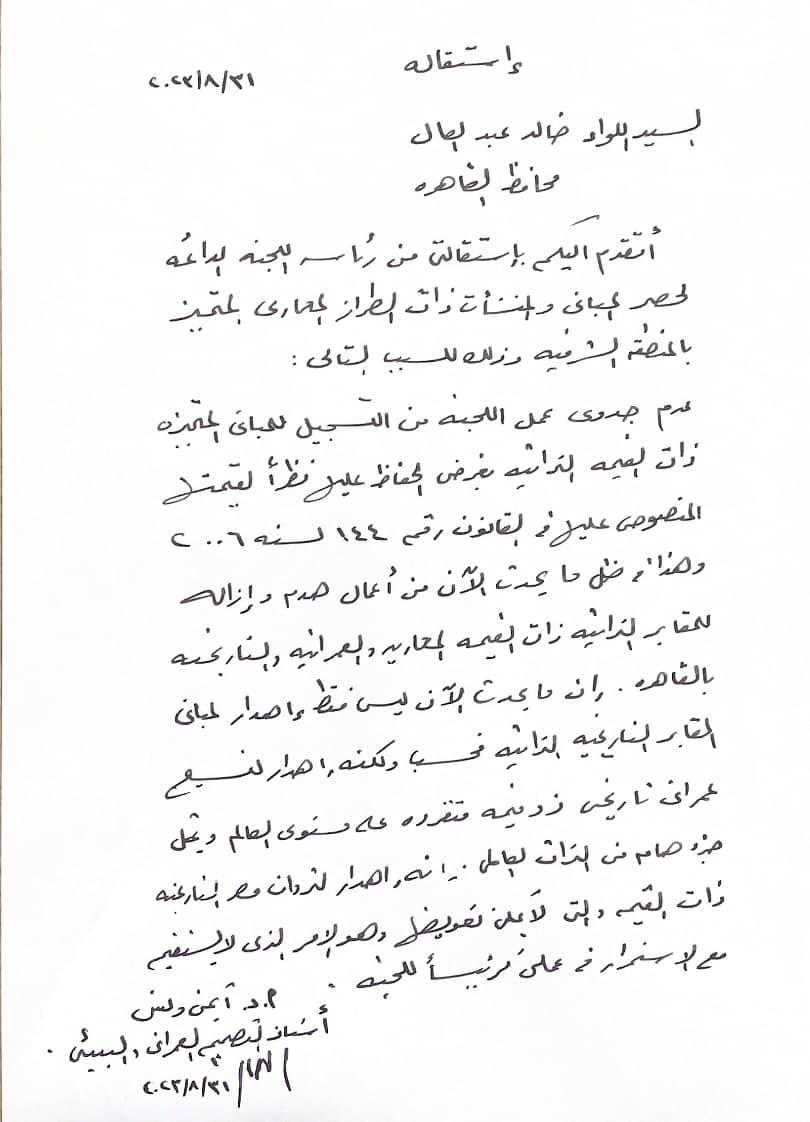 إستقاله
٢٠٢٣/٨/٣١
السيد اللواء خالد عبد العال
محافظ القاهره
أتقدم اليكم بإستقالتى من رئاسه اللجنه الدائمه
لحصر المبانى والمنشآت ذات الطراز المعمارى المتميز
بالمنطقه الشرقيه وذلك للسبب التالى :
عدم جدوى عمل اللجنه من التسجيل للمبانى المتميزه
ذات القيمه التراثيه بغرض الحفاظ عليها نظرأ لقيمتها
المنصوص عليها فى القانون رقم ١٤٤ لسنه ٢٠٠٦
وهذا فى ظل ما يحدث الآن من أعمال هدم وإزاله
للمقابر التراثيه ذات القيمه المعماريه والعمرانيه والتاريخيه
بالقاهره . إن ما يحدث الآن ليس فقط إهدار لمبانى
المقابر التاريخيه التراثيه فحسب ولكنه إهدار لنسيج
عمرانى تاريخى ذو قيمه متفرده على مستوى العالم ويمثل
جزء هام من التراث العالمى . إنه إهدار لثروات مصر التاريخيه
ذات القيمه والتى لا يمكن تعويضها وهو الامر الذى لا يستقيم
مع الإستمرار فى عملى كرئيسأ للجنه .
أ.د. أيمن ونس
أستاذ التصميم العمرانى والبيئى .
٢٠٢٣/٨/٣١